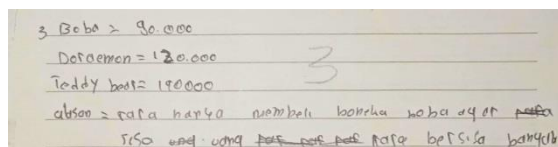 3 Boba = 90.000
Doraemon = 120.000
Teddy bear = 190000
3
alasan = rara hanya membeli boneka boba agar
siso uang rara bersisa banyak